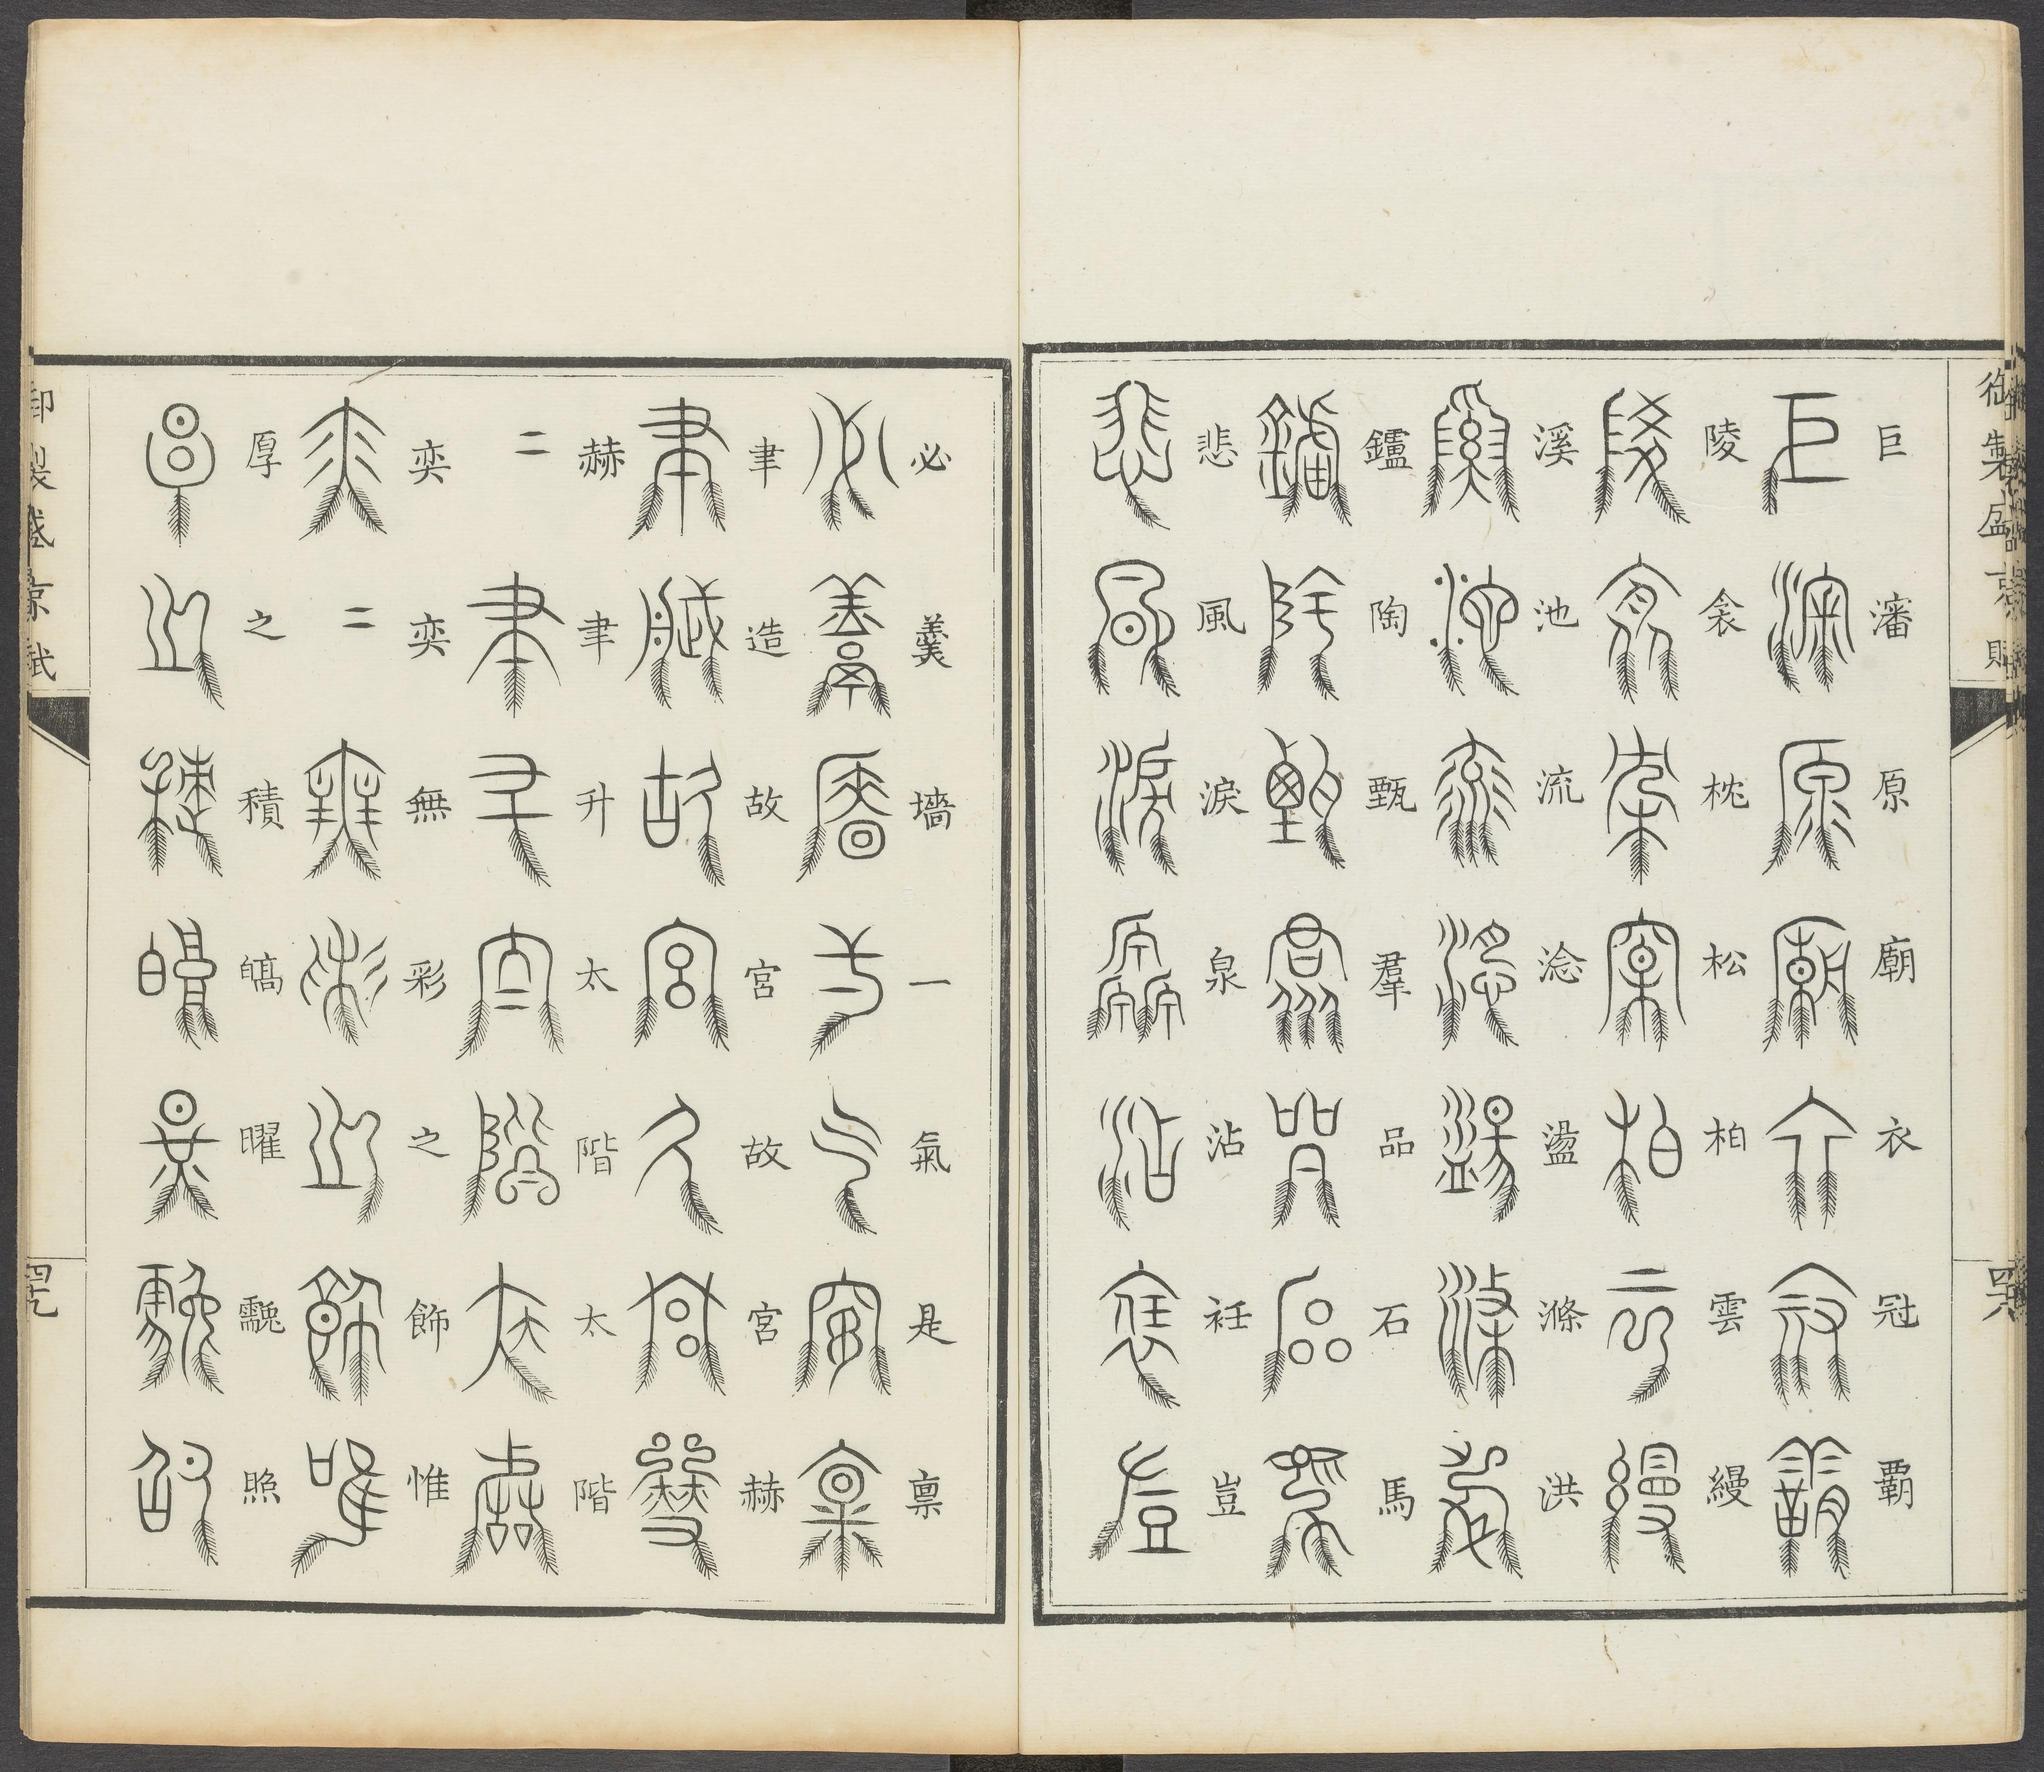 御製盛京賦
巨瀋原廟衣冠覇
陵衾枕松柏雲縵
溪池流淰盪滌洪
鑪陶甄羣品石馬
悲風淚泉沾衽豈
必羹墻一氣是禀
聿造故宮故宮赫
赫二聿升太階太階
奕二奕無彩之飾惟
厚之積皜曜䨲照
御製盛京賦